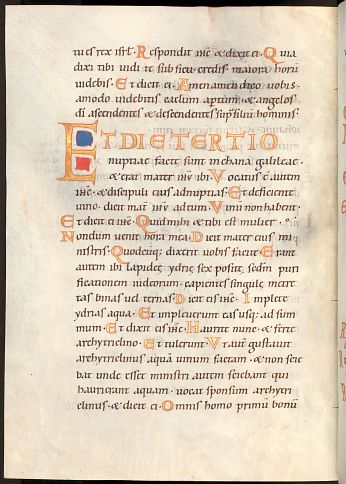 tu es rex isrl̄. Respondit ihc̄ & dixit ei. Quia
dixi tibi uidi te sub ficu credis. maiora horū
uidebis. Et dicit ei. Amen amen dico uobis.
amodo uidebitis caelum aptum & angelos
di ascendentes & descendentes sup̄ filiū hominis.
ET DIE TERTIO
nuptiae factę sunt in chana galileae.
& erat mater ihū ibi. Vocatus ē autem
ihc̄. & discipuli eius ad nuptias. Et deficiente
uino. dicit mat̄ ihū ad eum. Vinū non habent.
Et dicit ei ihc̄. Quid mihi & tibi est mulier.
Nondum uenit hora mea. Dicit mater eius mi
nistris. Quodcūq; dixerit uobis facite. Erant
autem ibi lapideę ydrię sex positę. secdm̄ puri
ficationem iudeorum. capientes singulę metre
tas binas uel ternas. Dicit eis ihc̄. Implete
ydrias aqua. Et impleuerunt eas usq; ad sum
mum. Et dixit eis ihc̄. Haurite nunc. & ferte
archytriclino. Et tulerunt. Vt aut̄ gustauit
archytriclinus aquā uinum factam. & non scie
bat unde esset ministri autem sciebant qui
haurierant aquam. uocat sponsum archytri
clinus. & dicit ei. Omnis homo primū bonū